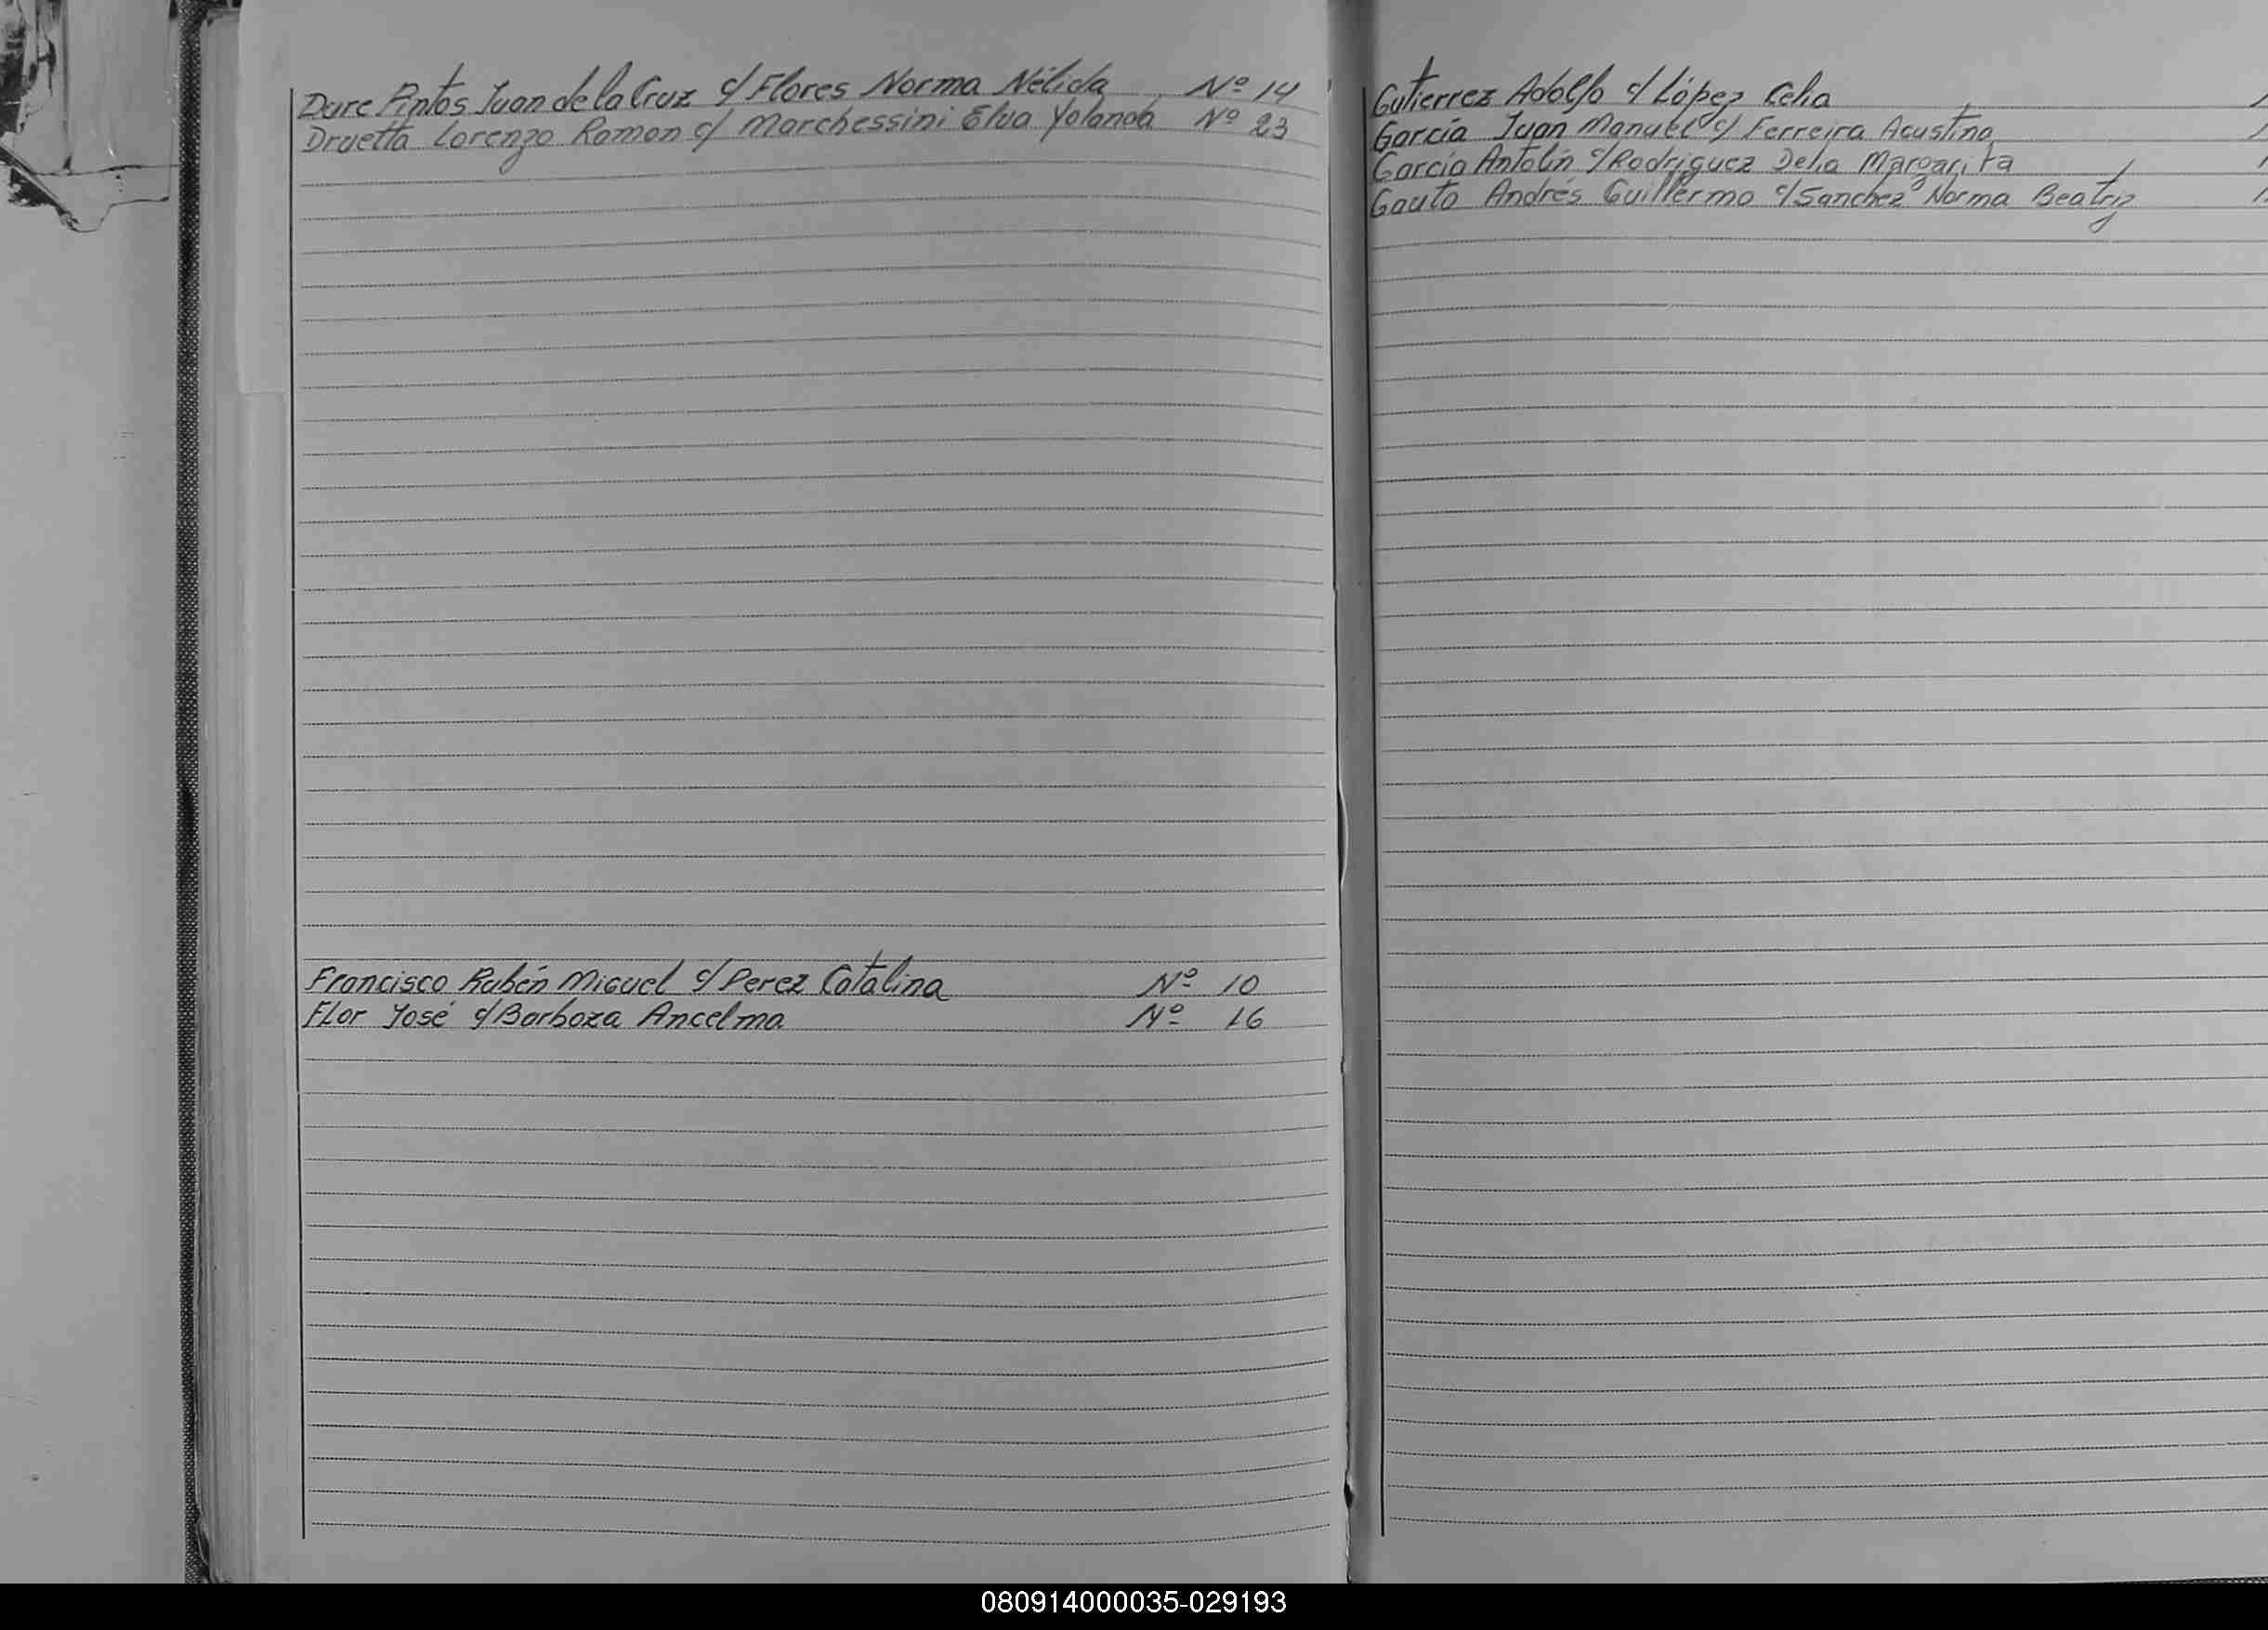 Dure Pintos Juan de la Cruz c/ Flores Norma Nélida Nº 14
Druetta Lorenzo Ramon c/ Marchessini Elva Yolanda Nº 23
Francisco Rubén Miguel c/ Perez Catalina Nº 10
Flor José c/ Barboza Ancelma Nº 16
Gutierrez Adolfo c/ López Celia
García Juan Manuel c/ Ferreira Agustina
García Antolín c/ Rodriguez Delia Margarita
Gauto Andrés Guillermo c/ Sanchez Norma Beatriz
080914000035-029193